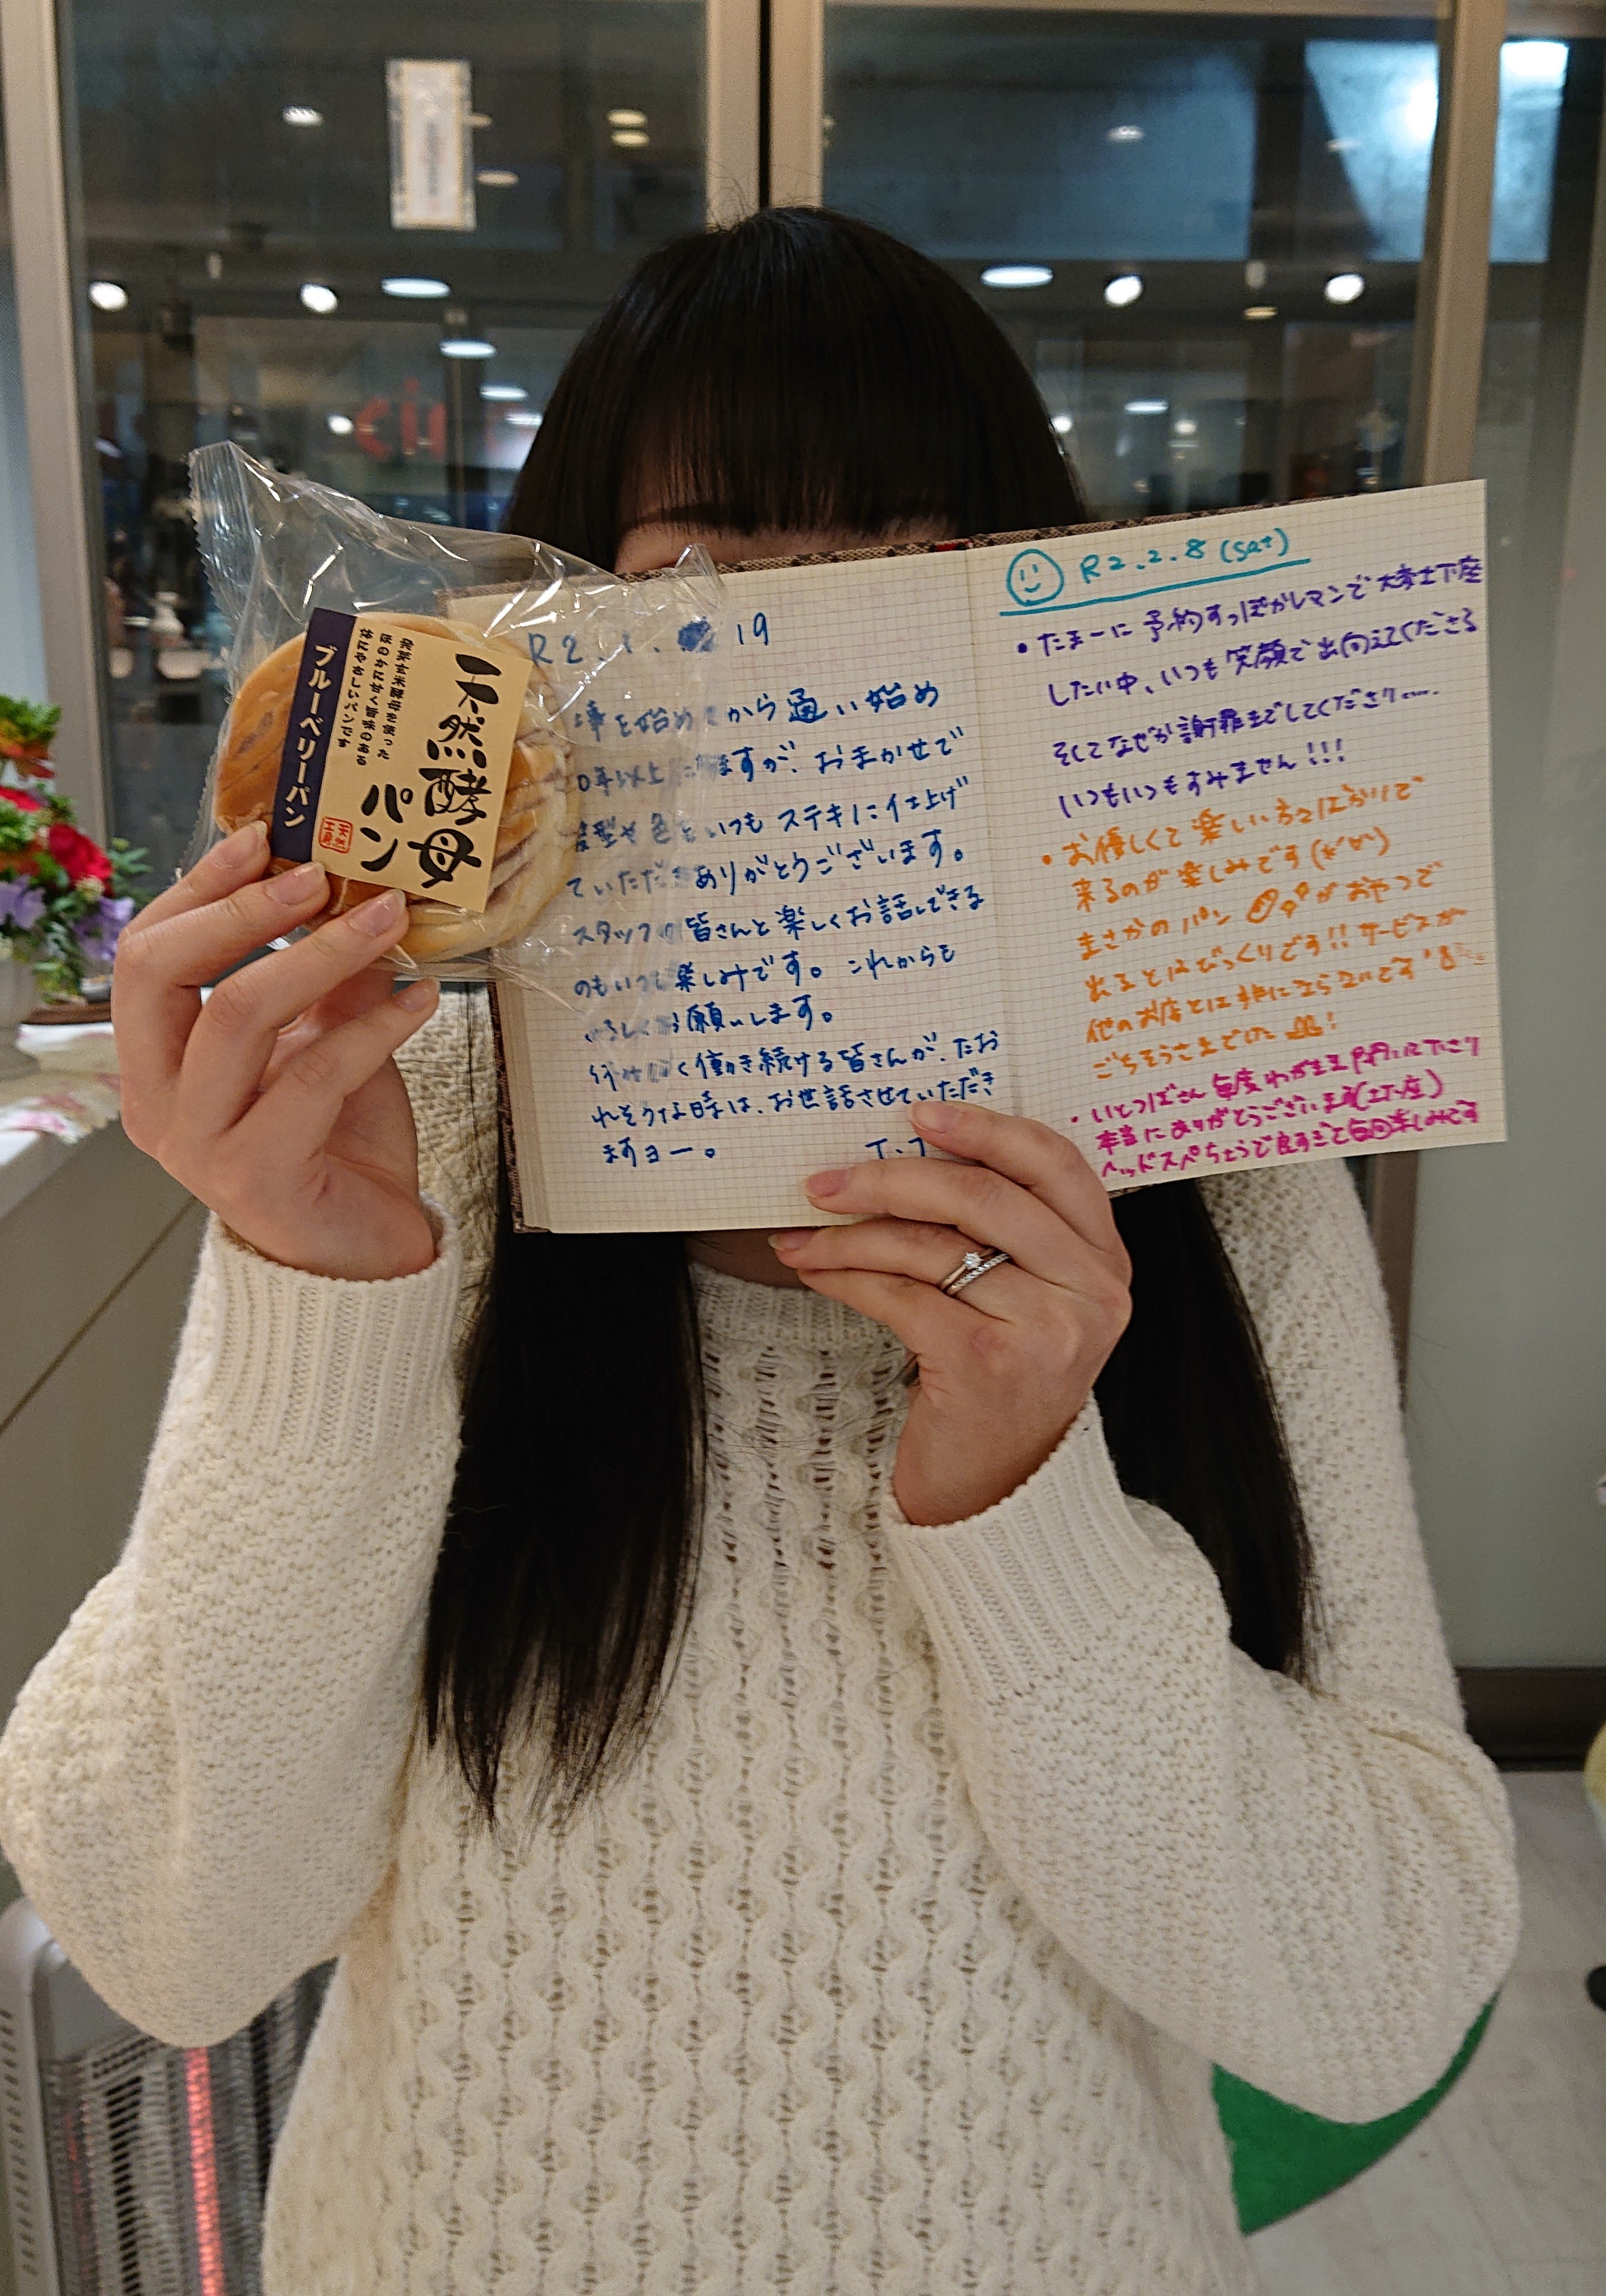 天然酵母
パン
発芽玄米酵母を使った
ほのかに甘く旨味のある
体にやさしいパンです
ブルーベリーパン
R2.1. 19
事を始め から通い始め
ますが、おまかせで
型や色をいつもステキに仕上げ
ていただき ありがとうございます。
スタッフの皆さんと楽しくお話しできる
のもいつも楽しみです。これからも
よろしくお願いします。
く働き続ける皆さんが、たお
れそうな時は、お世話させていただき
ますヨー。
R2.2.8 (Sat)
・たまーに予約すっぽかしマンで 土下座
したい中、いつも笑顔で出向えてくださる
そしてなぜか謝罪までしてくださり…
いつもいつもすみません!!!
・お優しくて楽しい方ばかりで
来るのが楽しみです
まさかのパンがおやつで
出るとはびっくりです!!サービスが
他のお店とは
ごちそうさまでした!
・いとつばさん毎度わがまま聞いて下さり
本当にありがとうございます(土下座)
ヘッドスパちょうど良すぎて毎回楽しみです